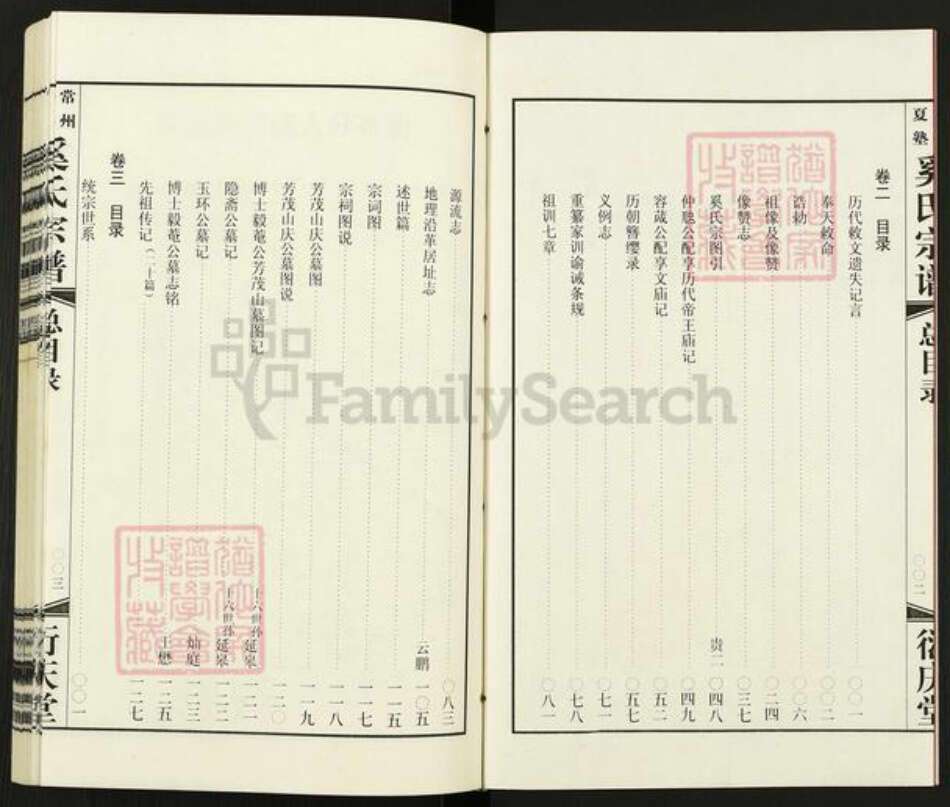 夏塾
奚氏宗谱
总目录
〇〇二
衍庆堂
卷二 目录
历代敕文遗失记言 〇〇一
奉天敕命 〇〇二
诰勅 〇〇六
祖像及像赞 〇二四
像赞志 〇三七
奚氏宗图引 贵一 〇四八
仲聪公配享历代帝王庙记 〇四九
容蒇公配享文庙记 〇五二
历朝簪缨录 〇五七
义例志 〇七一
重纂家训谕诫条规 〇七八
祖训七章 〇八一
源流志 〇八三
地理沿革居址志 云鹏 一〇五
述世篇 一一五
宗词图 一一七
宗祠图说 一一八
芳茂山庆公墓图 一一九
芳茂山庆公墓图说 一二〇
博士毅菴公芳茂山墓图记 十六世孙延皋 一二一
隐斋公墓记 十六世孙延皋 一二二
玉环公墓记 灿庭 一二三
博士毅菴公墓志铭 王懋 一二五
先祖传记（二十篇） 一二七
卷三 目录
统宗世系 〇〇一
常州
奚氏宗谱
总目录
〇〇三
衍庆堂
FamilySearch